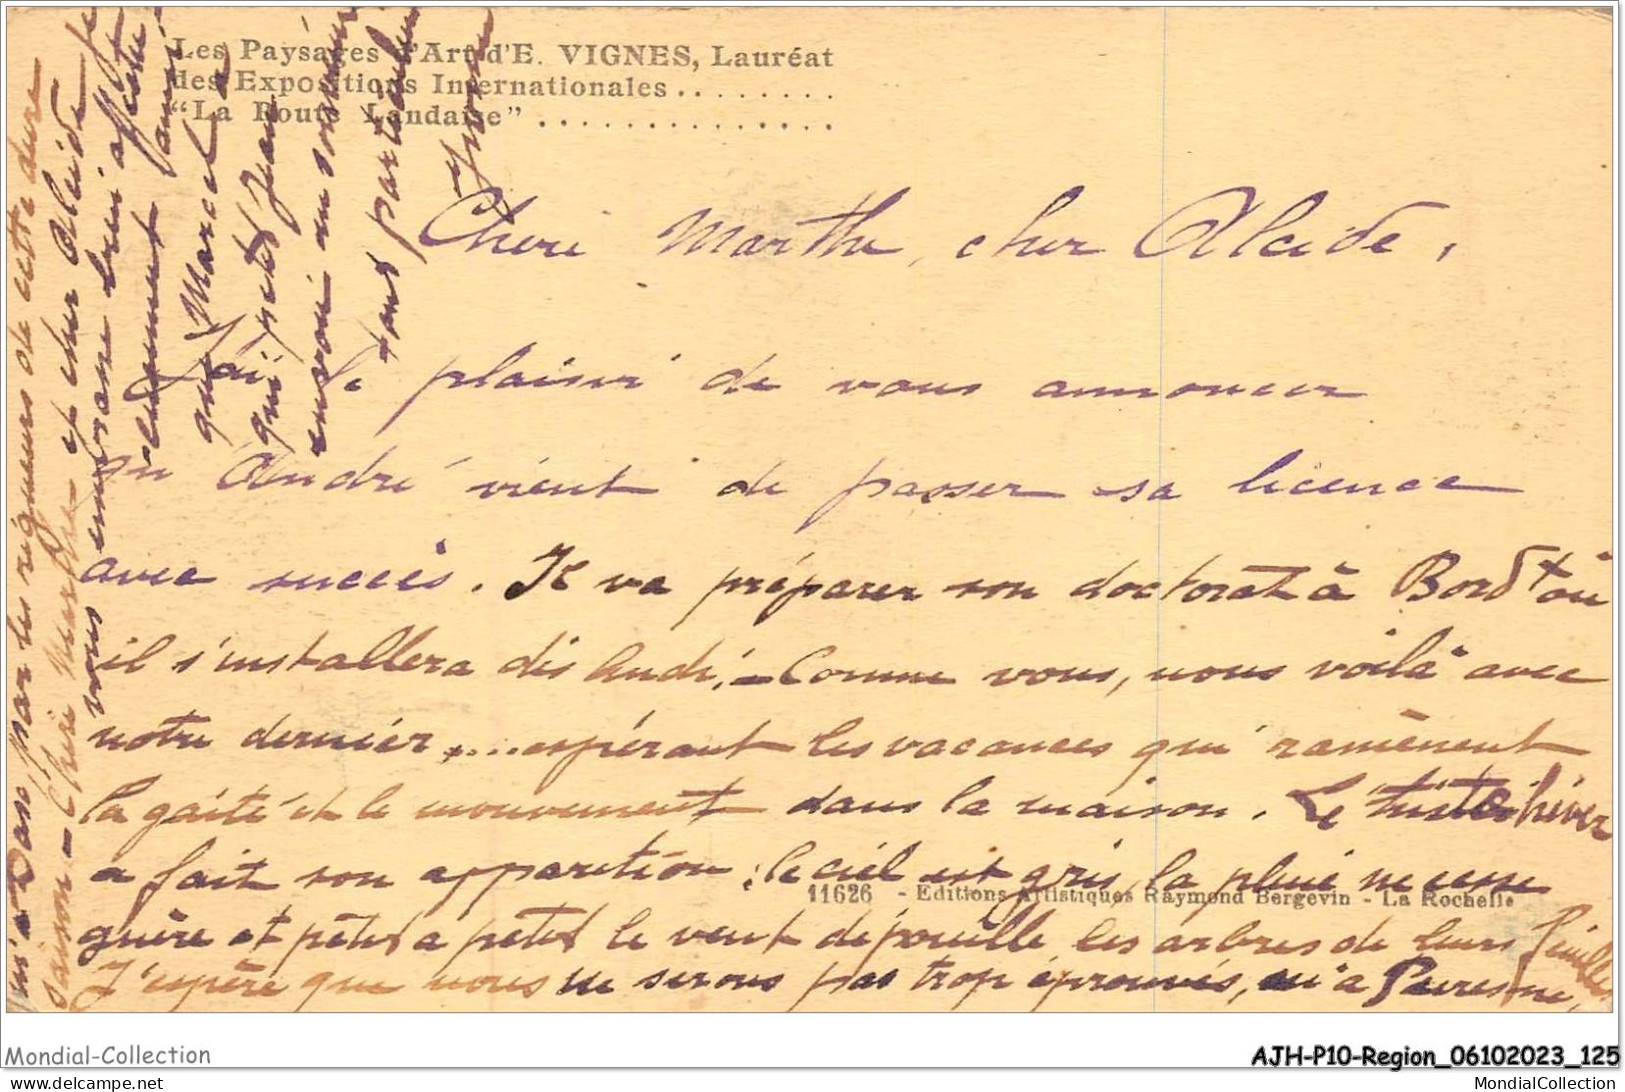 Les Paysages d'Art d'E. VIGNES, Lauréat
des Expositions Internationales ........
"La Route Landaise" ..............
Chère Marthe, cher Alcide,
J'ai le plaisir de vous annoncer
qu'André vient de passer sa licence
avec succès. Il va préparer son doctorat à Bordx où
il s'installera dès lundi. - Comme vous, nous voilà avec
notre dernier, .... espérant les vacances qui ramènent
la gaité et le mouvement dans la maison. Le triste hiver
a fait son apparition : le ciel est gris, la pluie ne cesse
guère et petit à petit le vent dépouille les arbres de leurs feuilles
J'espère que nous ne serons pas trop éprouvés, ni à
ni à Dax, par les rigueurs de cette dure
saison - Chère Marthe et cher Alcide je
vous embrasse bien affectu
eusement
que Marcel
qui petit Jean
envoi un
tout particulier
Yvonne
11626 - Editions Artistiques Raymond Bergevin - La Rochelle
Mondial-Collection
AJH-P10-Region_06102023_125
MondialCollection.eu
MondialCollection